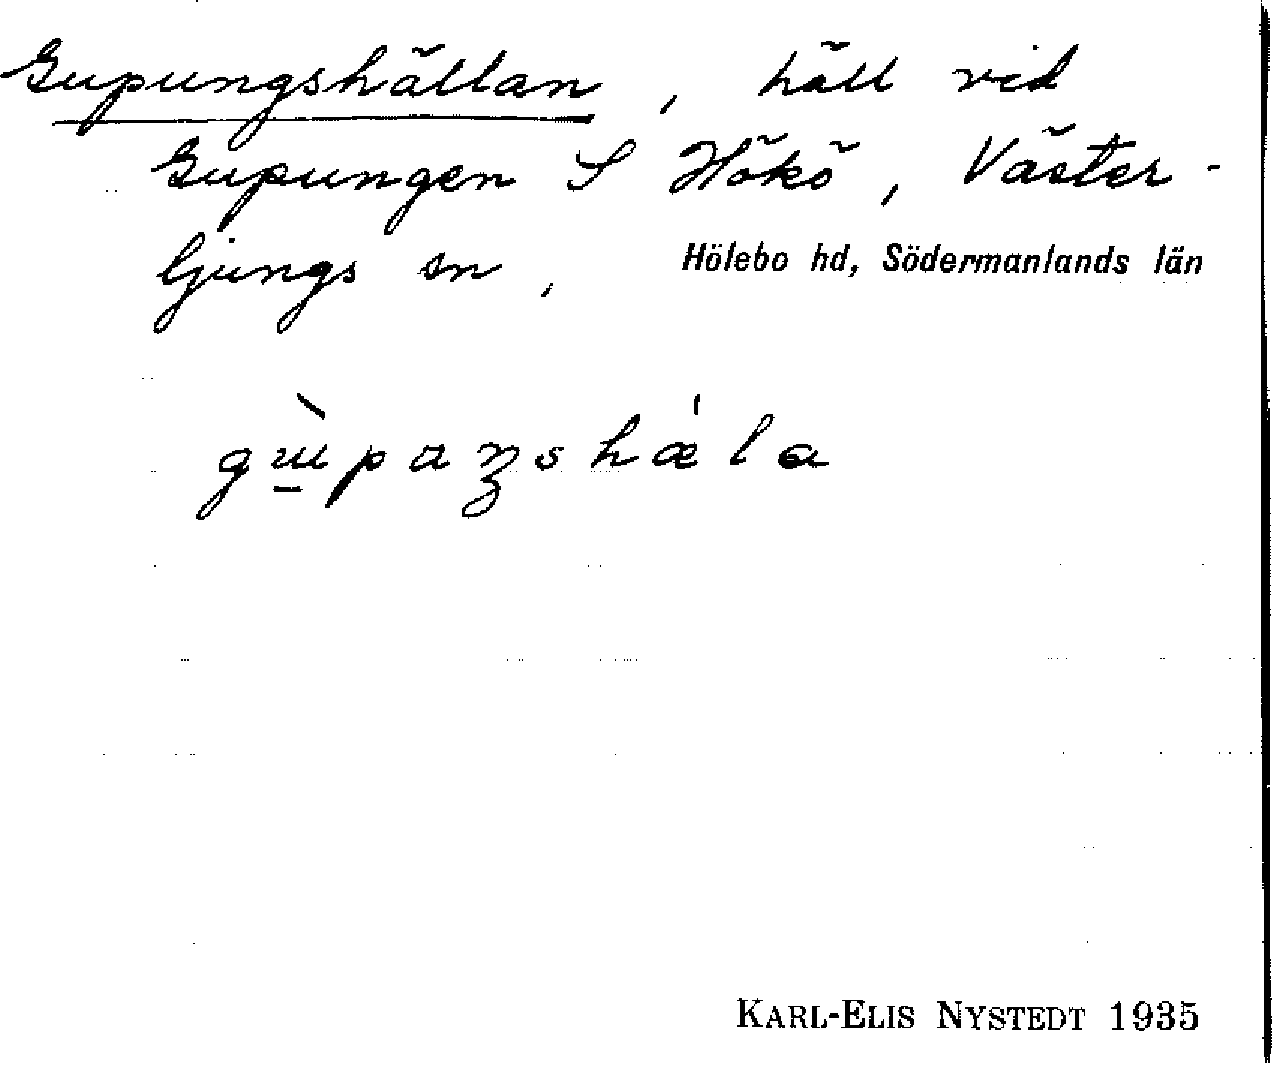 Gupungshällan, häll vid
Gupungen S Hökö, Väster-
ljungs sn, Hölebo hd, Södermanlands län
KARL-ELIS NYSTEDT 1935